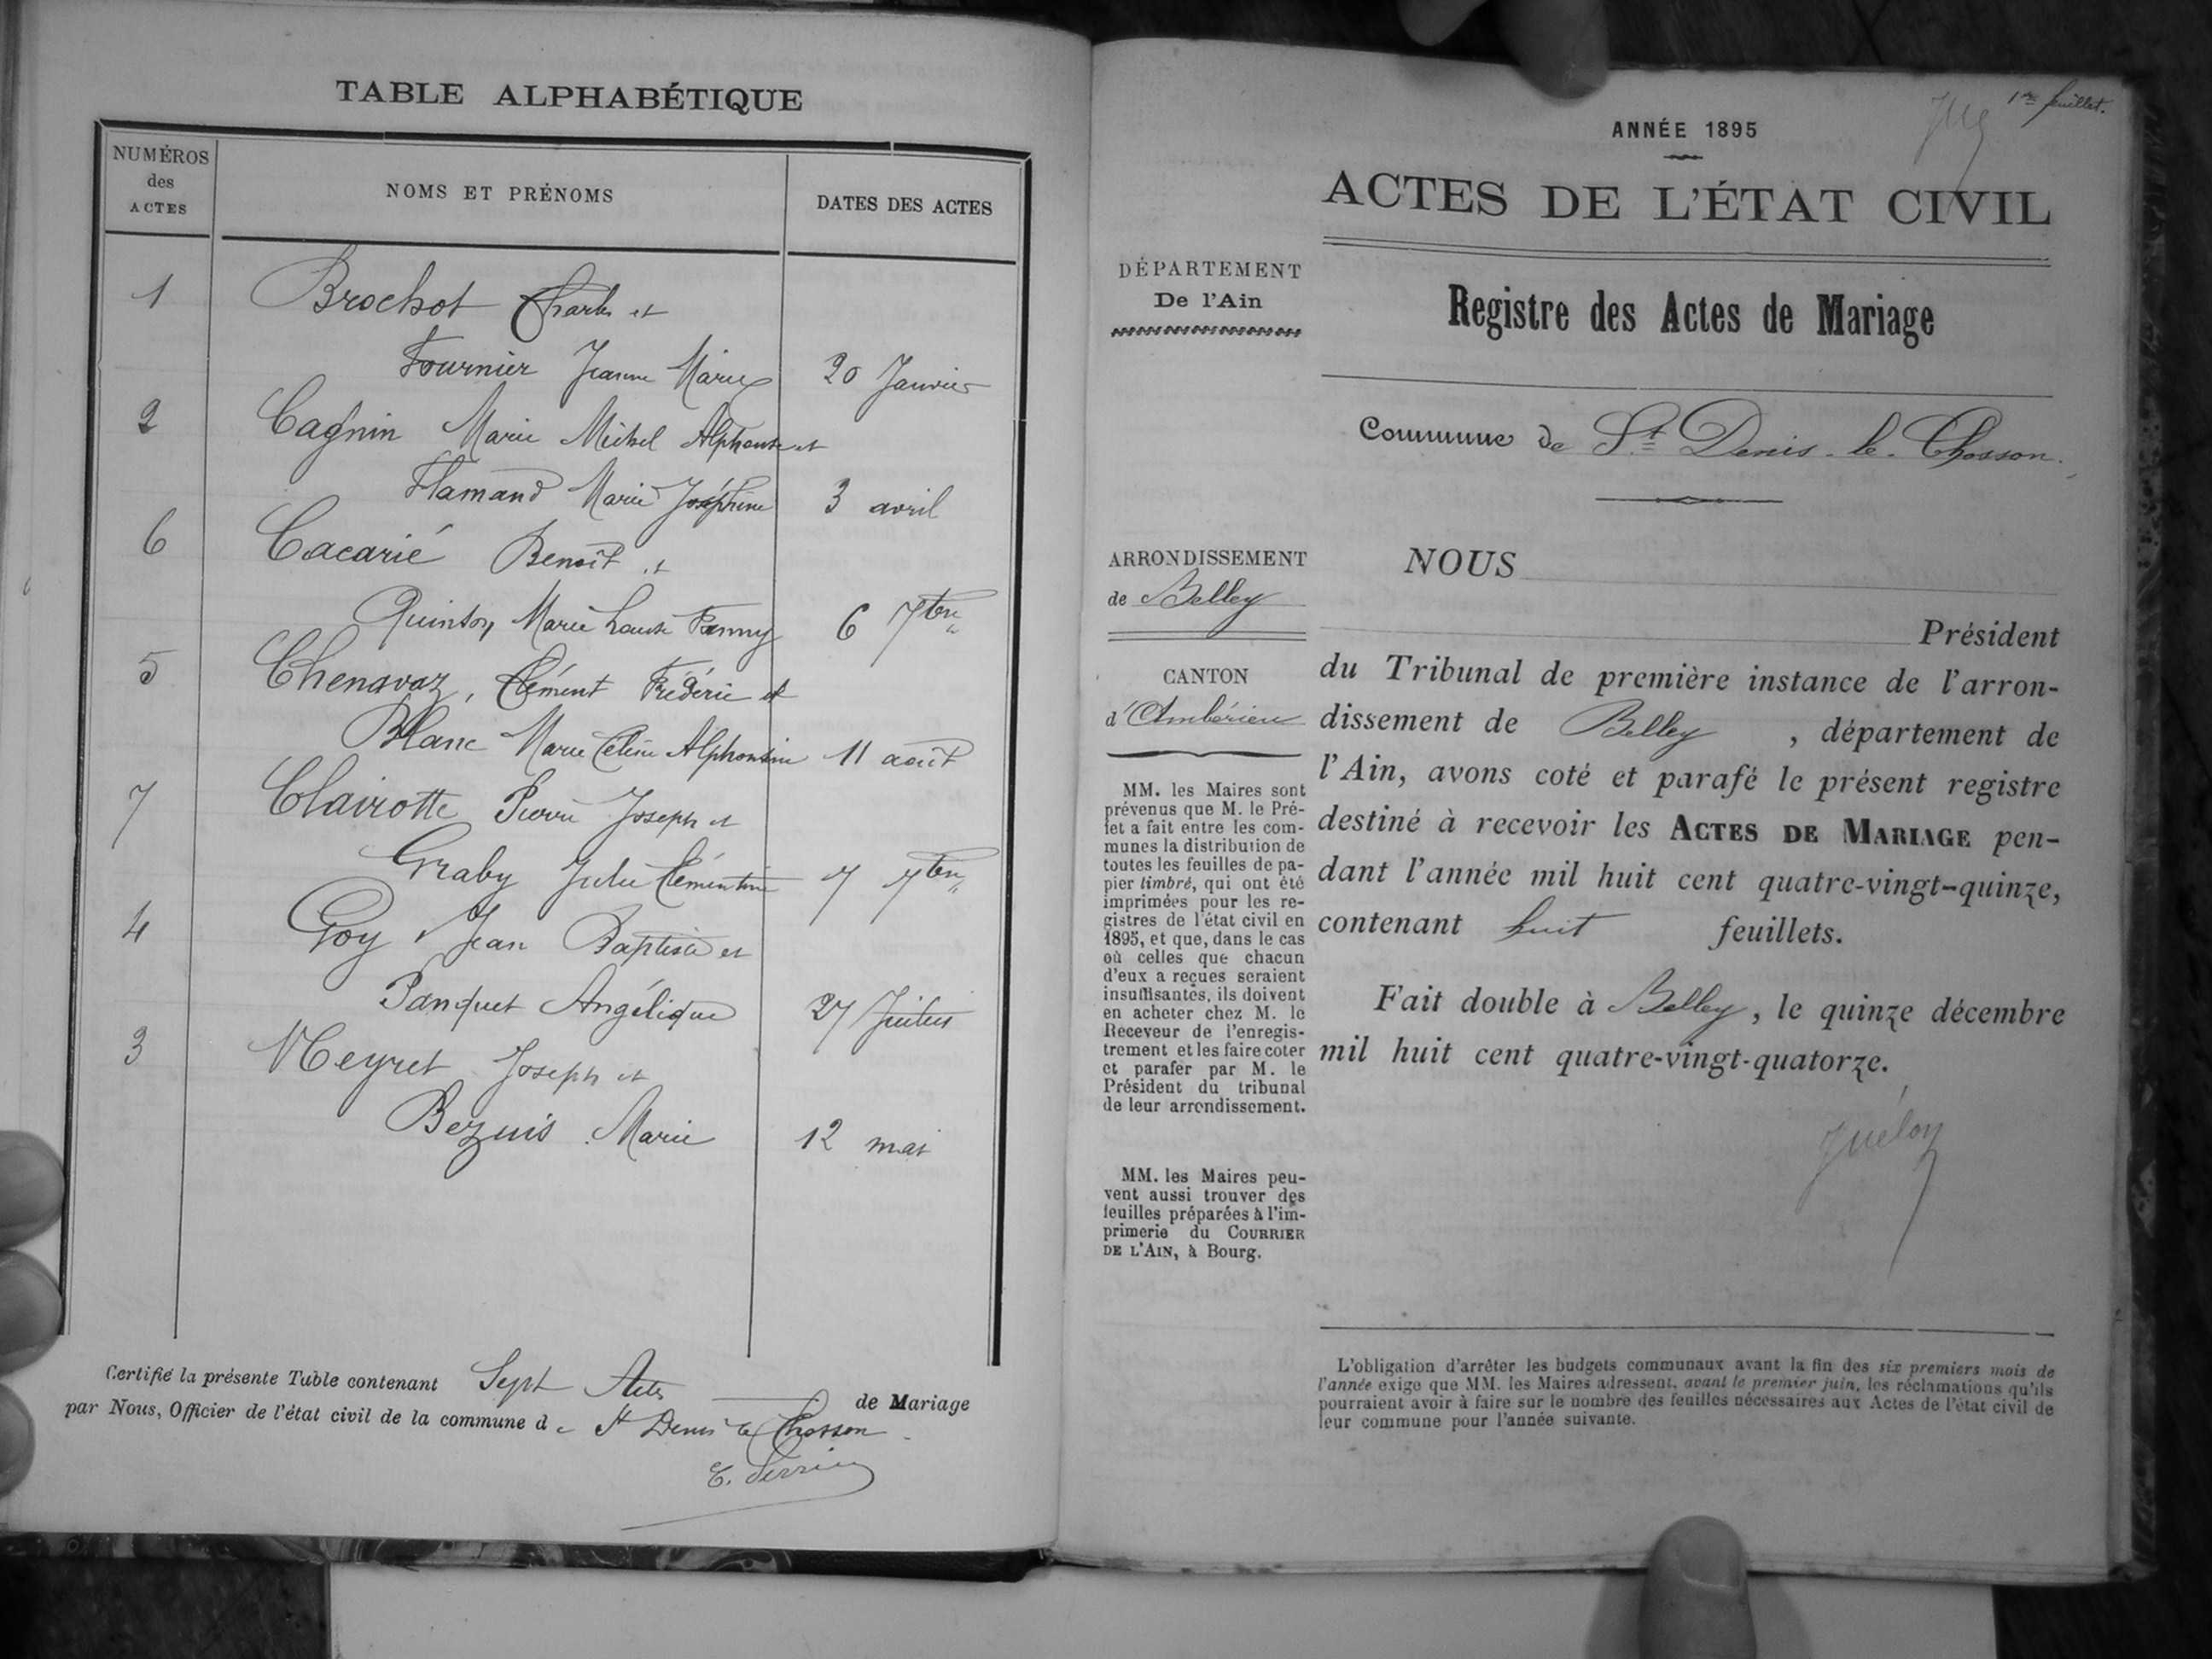 TABLE ALPHABÉTIQUE
NUMÉROS
des
ACTES
NOMS ET PRÉNOMS
DATES DES ACTES
1 Brochot Charles et
Fournier Jeanne Marie 20 Janvier
2 Cagnin Marie Michel Alphonse et
Flamand Marie Joséphine 3 avril
6 Cacarié Benoît et
Quinson Marie Louise Fanny 6 7bre
5 Chenavaz, Clément Frédéric et
Blanc Marie Céline Alphonsine 11 août
7 Clairotte Pierre Joseph et
Graby Julie Clémentine 7 7bre
4 Goy Jean Baptiste et
Panquet Angélique 27 Juillet
3 Meyret Joseph et
Bezuis Marie 12 mai
Certifié la présente Table contenant Sept Actes de Mariage
par Nous, Officier de l'état civil de la commune de St Denis le Chosson
1er feuillet.
ANNÉE 1895
ACTES DE L'ÉTAT CIVIL
DÉPARTEMENT
De l'Ain
Registre des Actes de Mariage
Commune de St Denis-le-Chosson.
ARRONDISSEMENT
de Belley
CANTON
d'Ambérieu
MM. les Maires sont
prévenus que M. le Pré-
fet a fait entre les com-
munes la distribution de
toutes les feuilles de pa-
pier timbré, qui ont été
imprimées pour les re-
gistres de l'état civil en
1895, et que, dans le cas
où celles que chacun
d'eux a reçues seraient
insuffisantes, ils doivent
en acheter chez M. le
Receveur de l'enregis-
trement et les faire coter
et parafer par M. le
Président du tribunal
de leur arrondissement.
MM. les Maires peu-
vent aussi trouver des
feuilles préparées à l'im-
primerie du COURRIER
DE L'AIN, à Bourg.
NOUS
Président
du Tribunal de première instance de l'arron-
dissement de Belley, département de
l'Ain, avons coté et parafé le présent registre
destiné à recevoir les ACTES DE MARIAGE pen-
dant l'année mil huit cent quatre-vingt-quinze,
contenant huit feuillets.
Fait double à Belley, le quinze décembre
mil huit cent quatre-vingt-quatorze.
L'obligation d'arrêter les budgets communaux avant la fin des six premiers mois de
l'année exige que MM. les Maires adressent, avant le premier juin, les réclamations qu'ils
pourraient avoir à faire sur le nombre des feuilles nécessaires aux Actes de l'état civil de
leur commune pour l'année suivante.